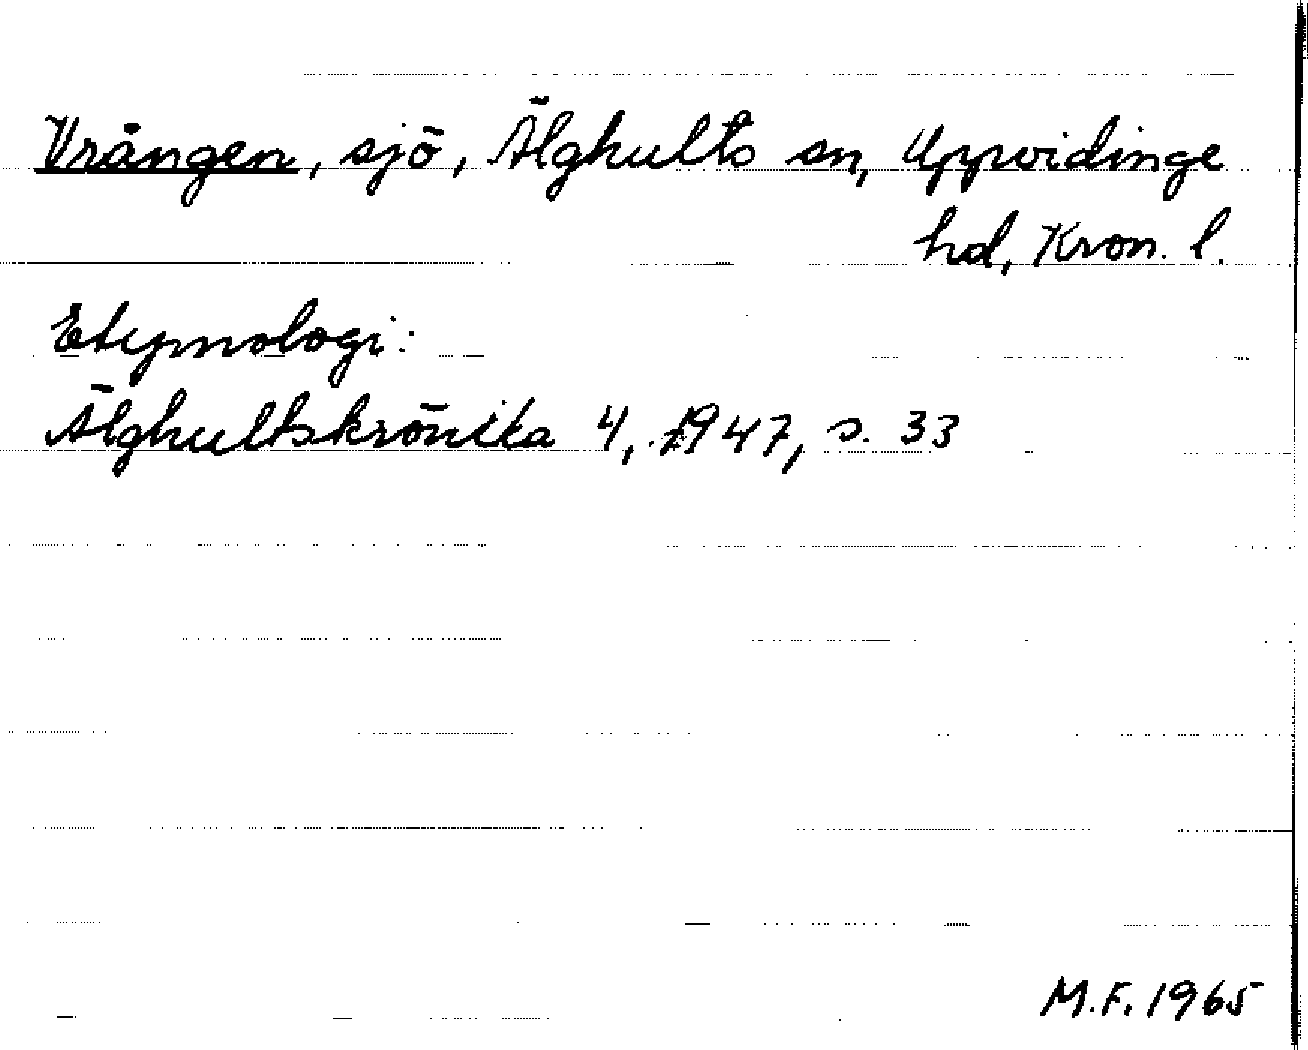 Vrången, sjö, Älghults sn, Uppvidinge
hd, Kron. l.
Etymologi:
Älghultskrönika 4, 1947, s. 33
M.F. 1965